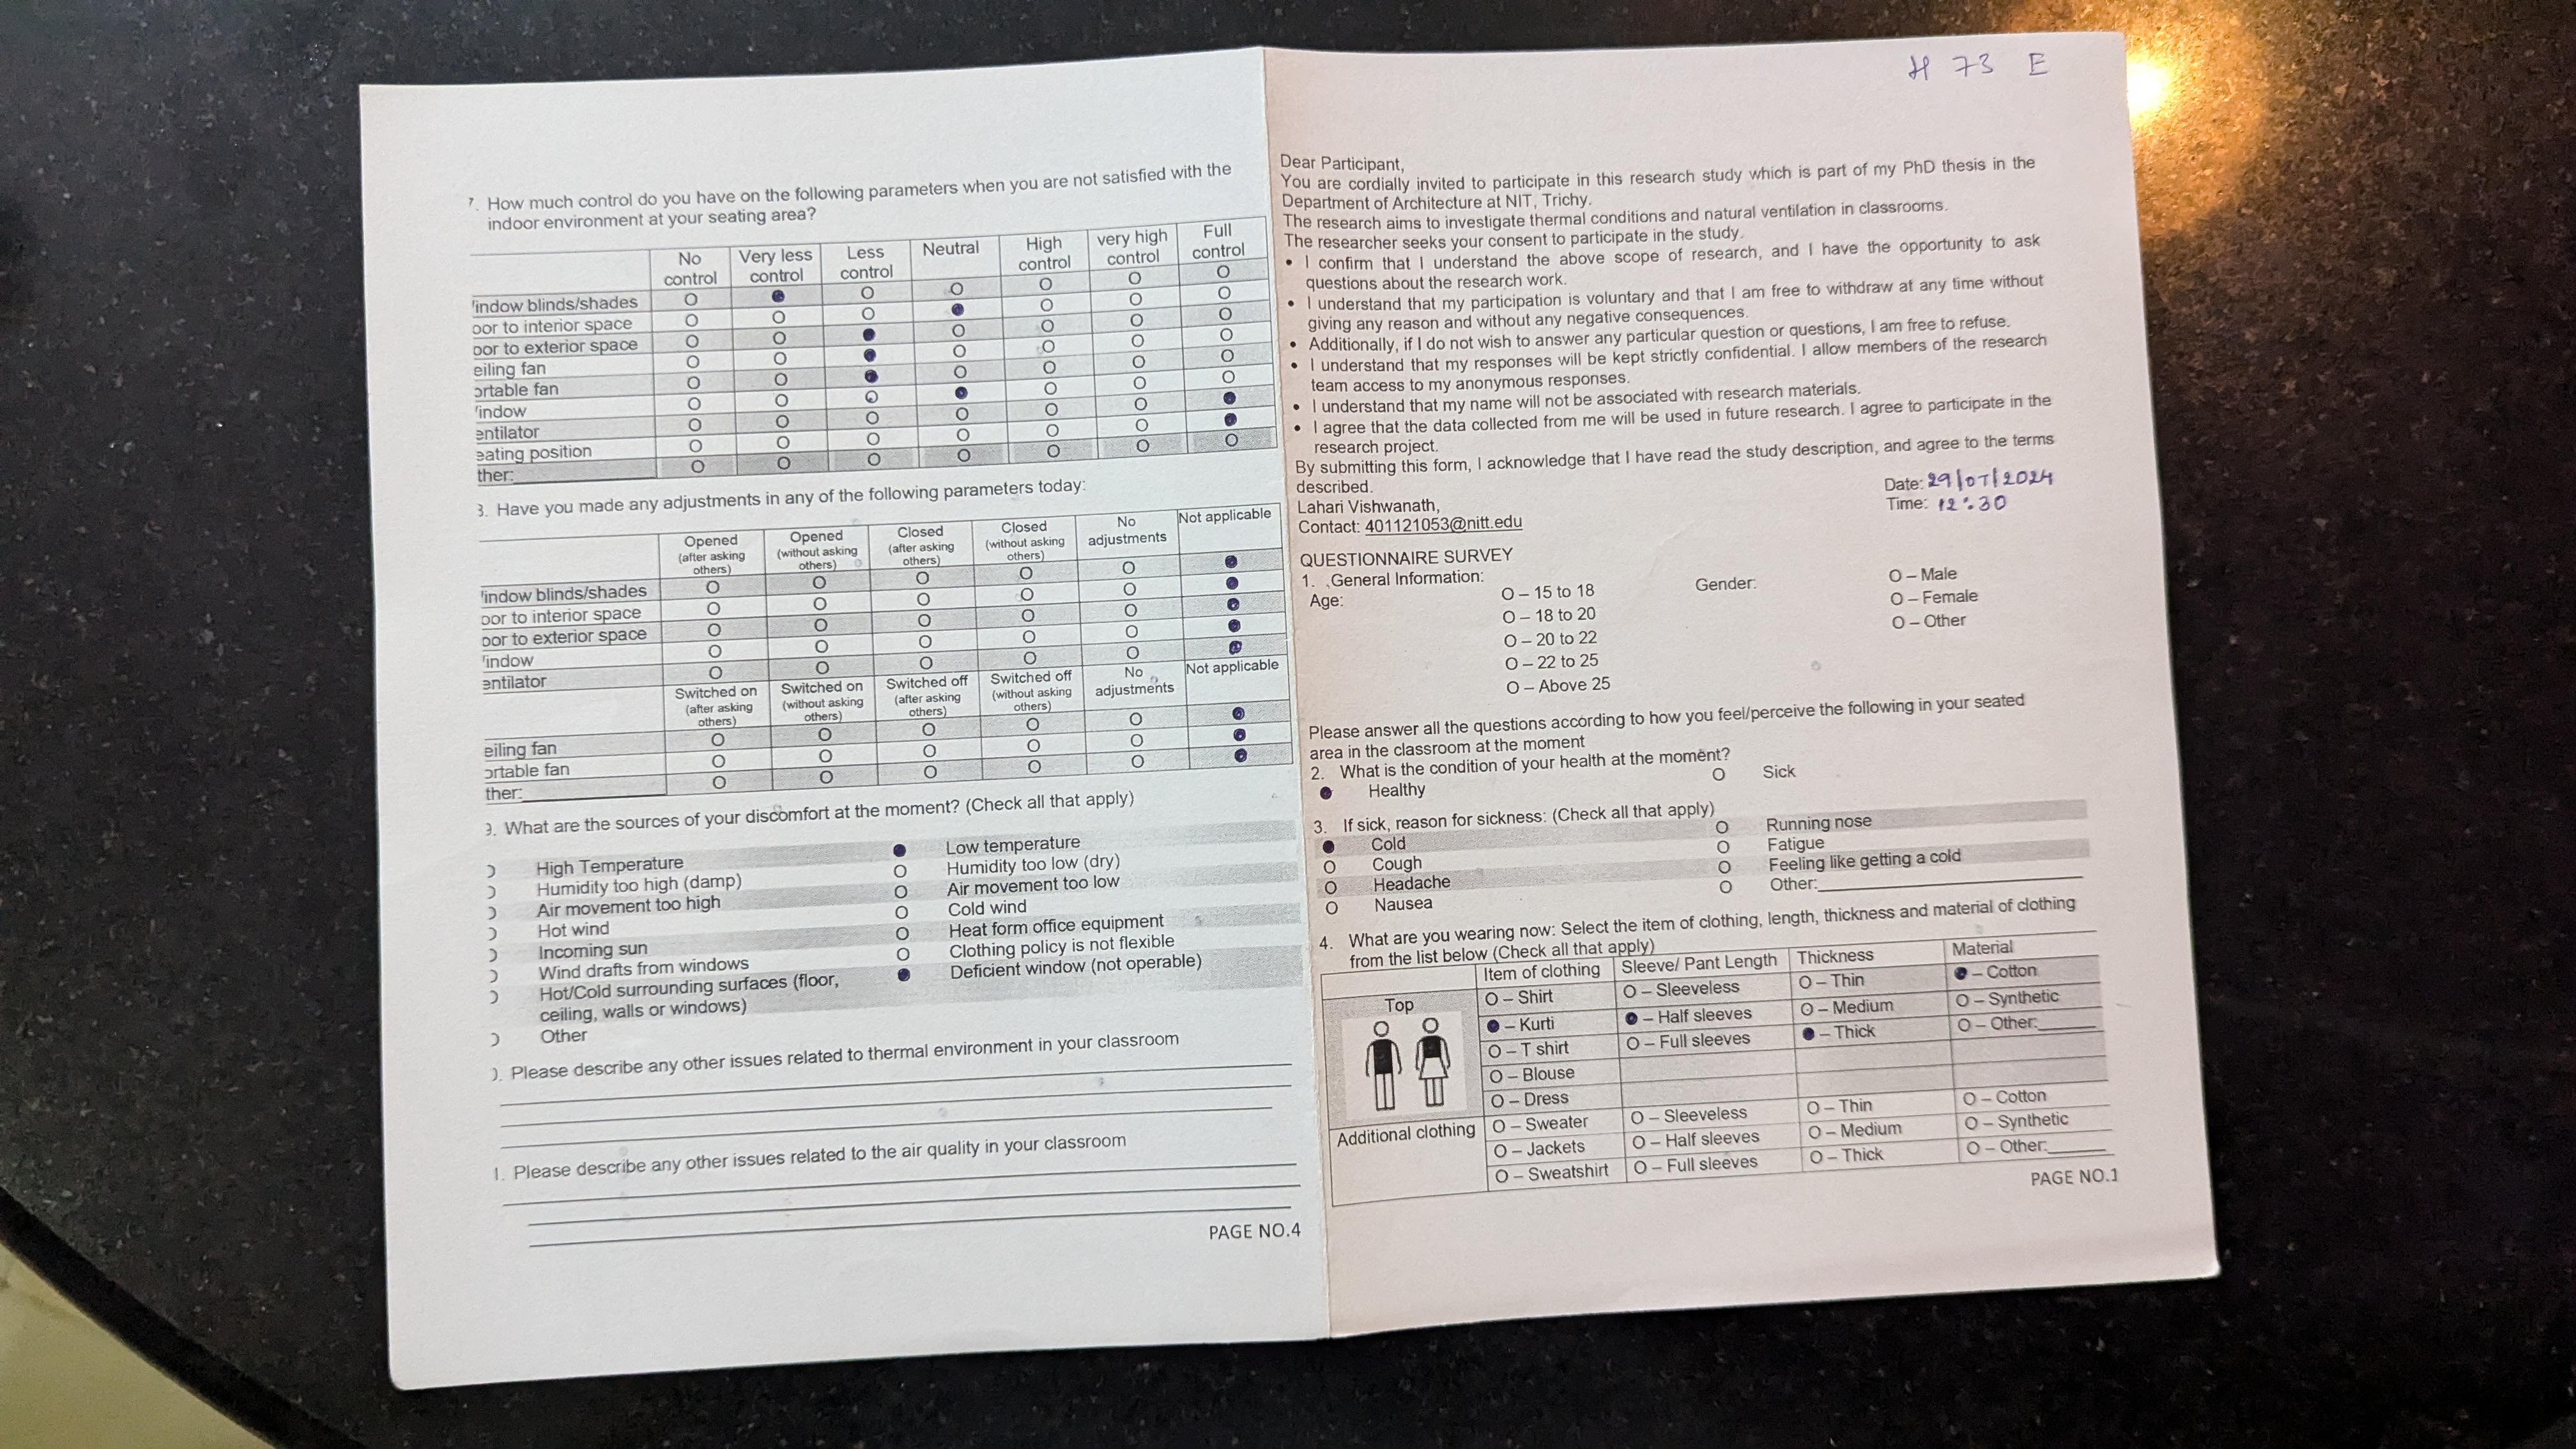 7. How much control do you have on the following parameters when you are not satisfied with the
indoor environment at your seating area?
No control Very less control Less control Neutral High control very high control Full control
indow blinds/shades O ● O O O O O
oor to interior space O O O ● O O O
oor to exterior space O O ● O O O O
eiling fan O O ● O O O O
ortable fan O O ● O O O O
indow O O O ● O O O
entilator O O O O O O ●
eating position O O O O O O ●
ther: O O O O O O O
3. Have you made any adjustments in any of the following parameters today:
Opened (after asking others) Opened (without asking others) Closed (after asking others) Closed (without asking others) No adjustments Not applicable
indow blinds/shades O O O O O ●
oor to interior space O O O O O ●
oor to exterior space O O O O O ●
indow O O O O O ●
entilator O O O O O ●
Switched on (after asking others) Switched on (without asking others) Switched off (after asking others) Switched off (without asking others) No adjustments Not applicable
eiling fan O O O O O ●
ortable fan O O O O O ●
ther: O O O O O ●
9. What are the sources of your discomfort at the moment? (Check all that apply)
High Temperature ● Low temperature
Humidity too high (damp) O Humidity too low (dry)
Air movement too high O Air movement too low
Hot wind O Cold wind
Incoming sun O Heat form office equipment
Wind drafts from windows O Clothing policy is not flexible
Hot/Cold surrounding surfaces (floor, ● Deficient window (not operable)
ceiling, walls or windows)
Other
). Please describe any other issues related to thermal environment in your classroom
1. Please describe any other issues related to the air quality in your classroom
PAGE NO.4
H 73 E
Dear Participant,
You are cordially invited to participate in this research study which is part of my PhD thesis in the
Department of Architecture at NIT, Trichy.
The research aims to investigate thermal conditions and natural ventilation in classrooms.
The researcher seeks your consent to participate in the study.
• I confirm that I understand the above scope of research, and I have the opportunity to ask
questions about the research work.
• I understand that my participation is voluntary and that I am free to withdraw at any time without
giving any reason and without any negative consequences.
• Additionally, if I do not wish to answer any particular question or questions, I am free to refuse.
• I understand that my responses will be kept strictly confidential. I allow members of the research
team access to my anonymous responses.
• I understand that my name will not be associated with research materials.
• I agree that the data collected from me will be used in future research. I agree to participate in the
research project.
By submitting this form, I acknowledge that I have read the study description, and agree to the terms
described.
Date: 29/07/2024
Lahari Vishwanath,
Time: 12:30
Contact: 401121053@nitt.edu
QUESTIONNAIRE SURVEY
1. General Information:
Age: O – 15 to 18 Gender: O – Male
O – 18 to 20 O – Female
O – 20 to 22 O – Other
O – 22 to 25
O – Above 25
Please answer all the questions according to how you feel/perceive the following in your seated
area in the classroom at the moment
2. What is the condition of your health at the moment?
● Healthy O Sick
3. If sick, reason for sickness: (Check all that apply)
● Cold O Running nose
O Cough O Fatigue
O Headache O Feeling like getting a cold
O Nausea O Other:
4. What are you wearing now: Select the item of clothing, length, thickness and material of clothing
from the list below (Check all that apply)
Item of clothing Sleeve/ Pant Length Thickness Material
Top O – Shirt O – Sleeveless O – Thin ● – Cotton
● – Kurti ● – Half sleeves O – Medium O – Synthetic
O – T shirt O – Full sleeves ● – Thick O – Other:
O – Blouse
O – Dress
Additional clothing O – Sweater O – Sleeveless O – Thin O – Cotton
O – Jackets O – Half sleeves O – Medium O – Synthetic
O – Sweatshirt O – Full sleeves O – Thick O – Other:
PAGE NO.1